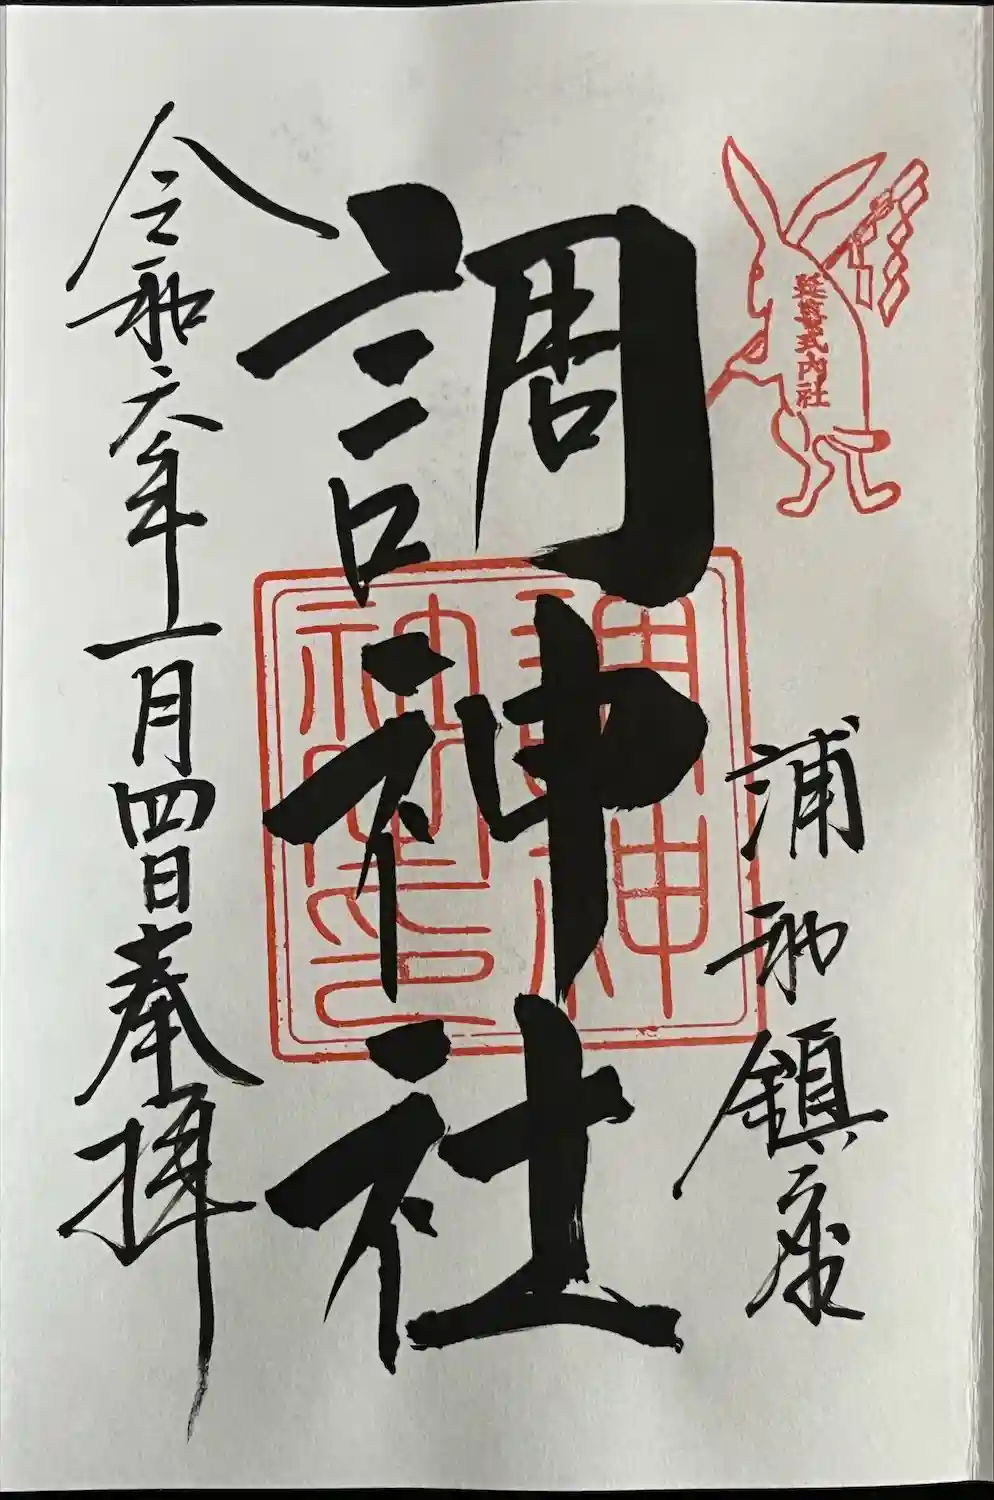 延喜式内社
浦和鎮座
調神社
調神社印
令和六年一月四日奉拝